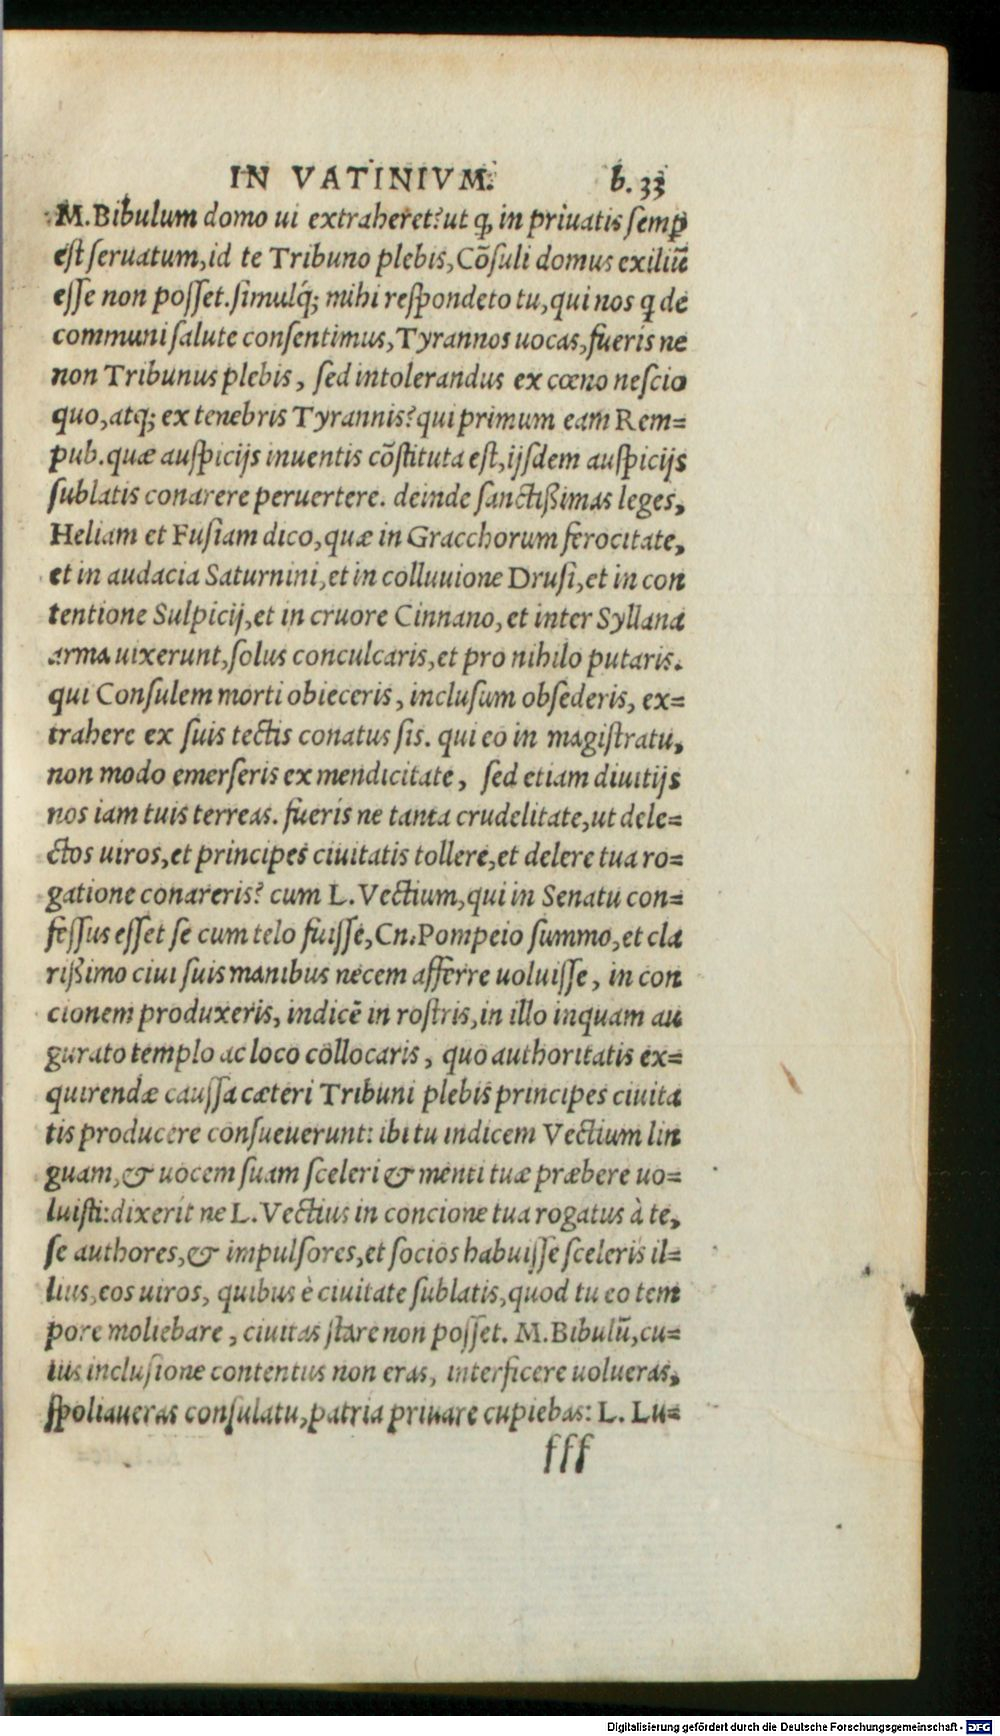 IN VATINIVM. b. 33
M. Bibulum domo ui extraheret? ut ꝙ in priuatis semꝑ
est seruatum, id te Tribuno plebis, Cōsuli domus exiliū
esse non posset. simulq́; mihi respondeto tu, qui nos ꝗ de
communi salute consentimus, Tyrannos uocas, fueris ne
non Tribunus plebis, sed intolerandus ex cœno nescio
quo, atq; ex tenebris Tyrannis? qui primum eam Rem=
pub. quæ auspicijs inuentis cōstituta est, ijsdem auspicijs
sublatis conarere peruertere. deinde sanctißimas leges,
Heliam et Fusiam dico, quæ in Gracchorum ferocitate,
et in audacia Saturnini, et in colluuione Drusi, et in con
tentione Sulpicij, et in cruore Cinnano, et inter Syllana
arma uixerunt, solus conculcaris, et pro nihilo putaris.
qui Consulem morti obieceris, inclusum obsederis, ex=
trahere ex suis tectis conatus sis. qui eo in magistratu,
non modo emerseris ex mendicitate, sed etiam diuitijs
nos iam tuis terreas. fueris ne tanta crudelitate, ut dele=
ctos uiros, et principes ciuitatis tollere, et delere tua ro=
gatione conareris? cum L. Vectium, qui in Senatu con=
fessus esset se cum telo fuisse, Cn. Pompeio summo, et cla
rißimo ciui suis manibus necem afferre uoluisse, in con
cionem produxeris, indicē in rostris, in illo inquam au
gurato templo ac loco collocaris, quo authoritatis ex=
quirendæ caussa cæteri Tribuni plebis principes ciuita
tis producere consueuerunt: ibi tu indicem Vectium lin
guam, & uocem suam sceleri & menti tuæ præbere uo=
luisti: dixerit ne L. Vectius in concione tua rogatus à te,
se authores, & impulsores, et socios habuisse sceleris il=
lius, eos uiros, quibus è ciuitate sublatis, quod tu eo tem
pore moliebare, ciuitas stare non posset. M. Bibulū, cu=
ius inclusione contentus non eras, interficere uolueras,
spoliaueras consulatu, patria priuare cupiebas: L. Lu=
fff
Digitalisierung gefördert durch die Deutsche Forschungsgemeinschaft - DFG